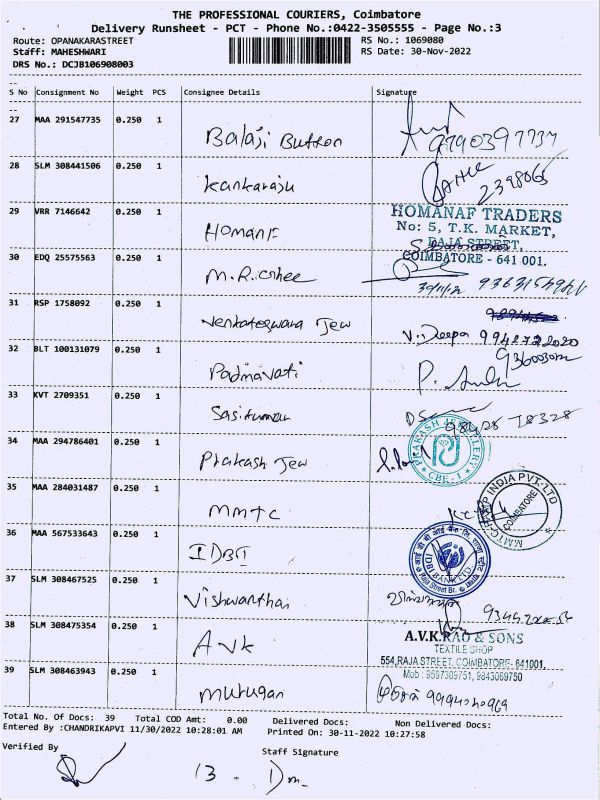 THE PROFESSIONAL COURIERS, Coimbatore
Delivery Runsheet - PCT - Phone No.:0422-3505555 - Page No.:3
Route: OPANAKARASTREET RS No.: 1069080
Staff: MAHESHWARI RS Date: 30-Nov-2022
DRS No.: DCJB106908003
S No Consignment No Weight PCS Consignee Details Signature
27 MAA 291547735 0.250 1 Balaji Button 9790397737
28 SLM 308441506 0.250 1 Kankaraju 2398065
29 VRR 7146642 0.250 1 Homanf
HOMANAF TRADERS
No: 5, T.K. MARKET,
RAJA STREET,
COIMBATORE - 641 001.
30 EDQ 25575563 0.250 1 M.R.
31 RSP 1758092 0.250 1 Venkateswara Jew V. Deepa
32 BLT 100131079 0.250 1 Padmavati
33 KVT 2709351 0.250 1 Sasikumar
34 MAA 294786401 0.250 1 Prakash Jew
PRAKASH JEWELLERY
CBE-1
35 MAA 284031487 0.250 1 MMTC
MMTC-PAMP INDIA PVT-LTD
COIMBATORE
36 MAA 567533643 0.250 1 IDBI
IDBI BANK LTD.
Raja Street Br.
37 SLM 308467525 0.250 1
38 SLM 308475354 0.250 1 AVK
A.V.K.RAO & SONS
TEXTILE SHOP
554,RAJA STREET, COIMBATORE- 641001.
Mob : 9597309751, 9843069750
39 SLM 308463943 0.250 1 Murugan
Total No. Of Docs: 39 Total COD Amt: 0.00 Delivered Docs: Non Delivered Docs:
Entered By :CHANDRIKAPVI 11/30/2022 10:28:01 AM Printed On: 30-11-2022 10:27:58
Verified By Staff Signature
13 -